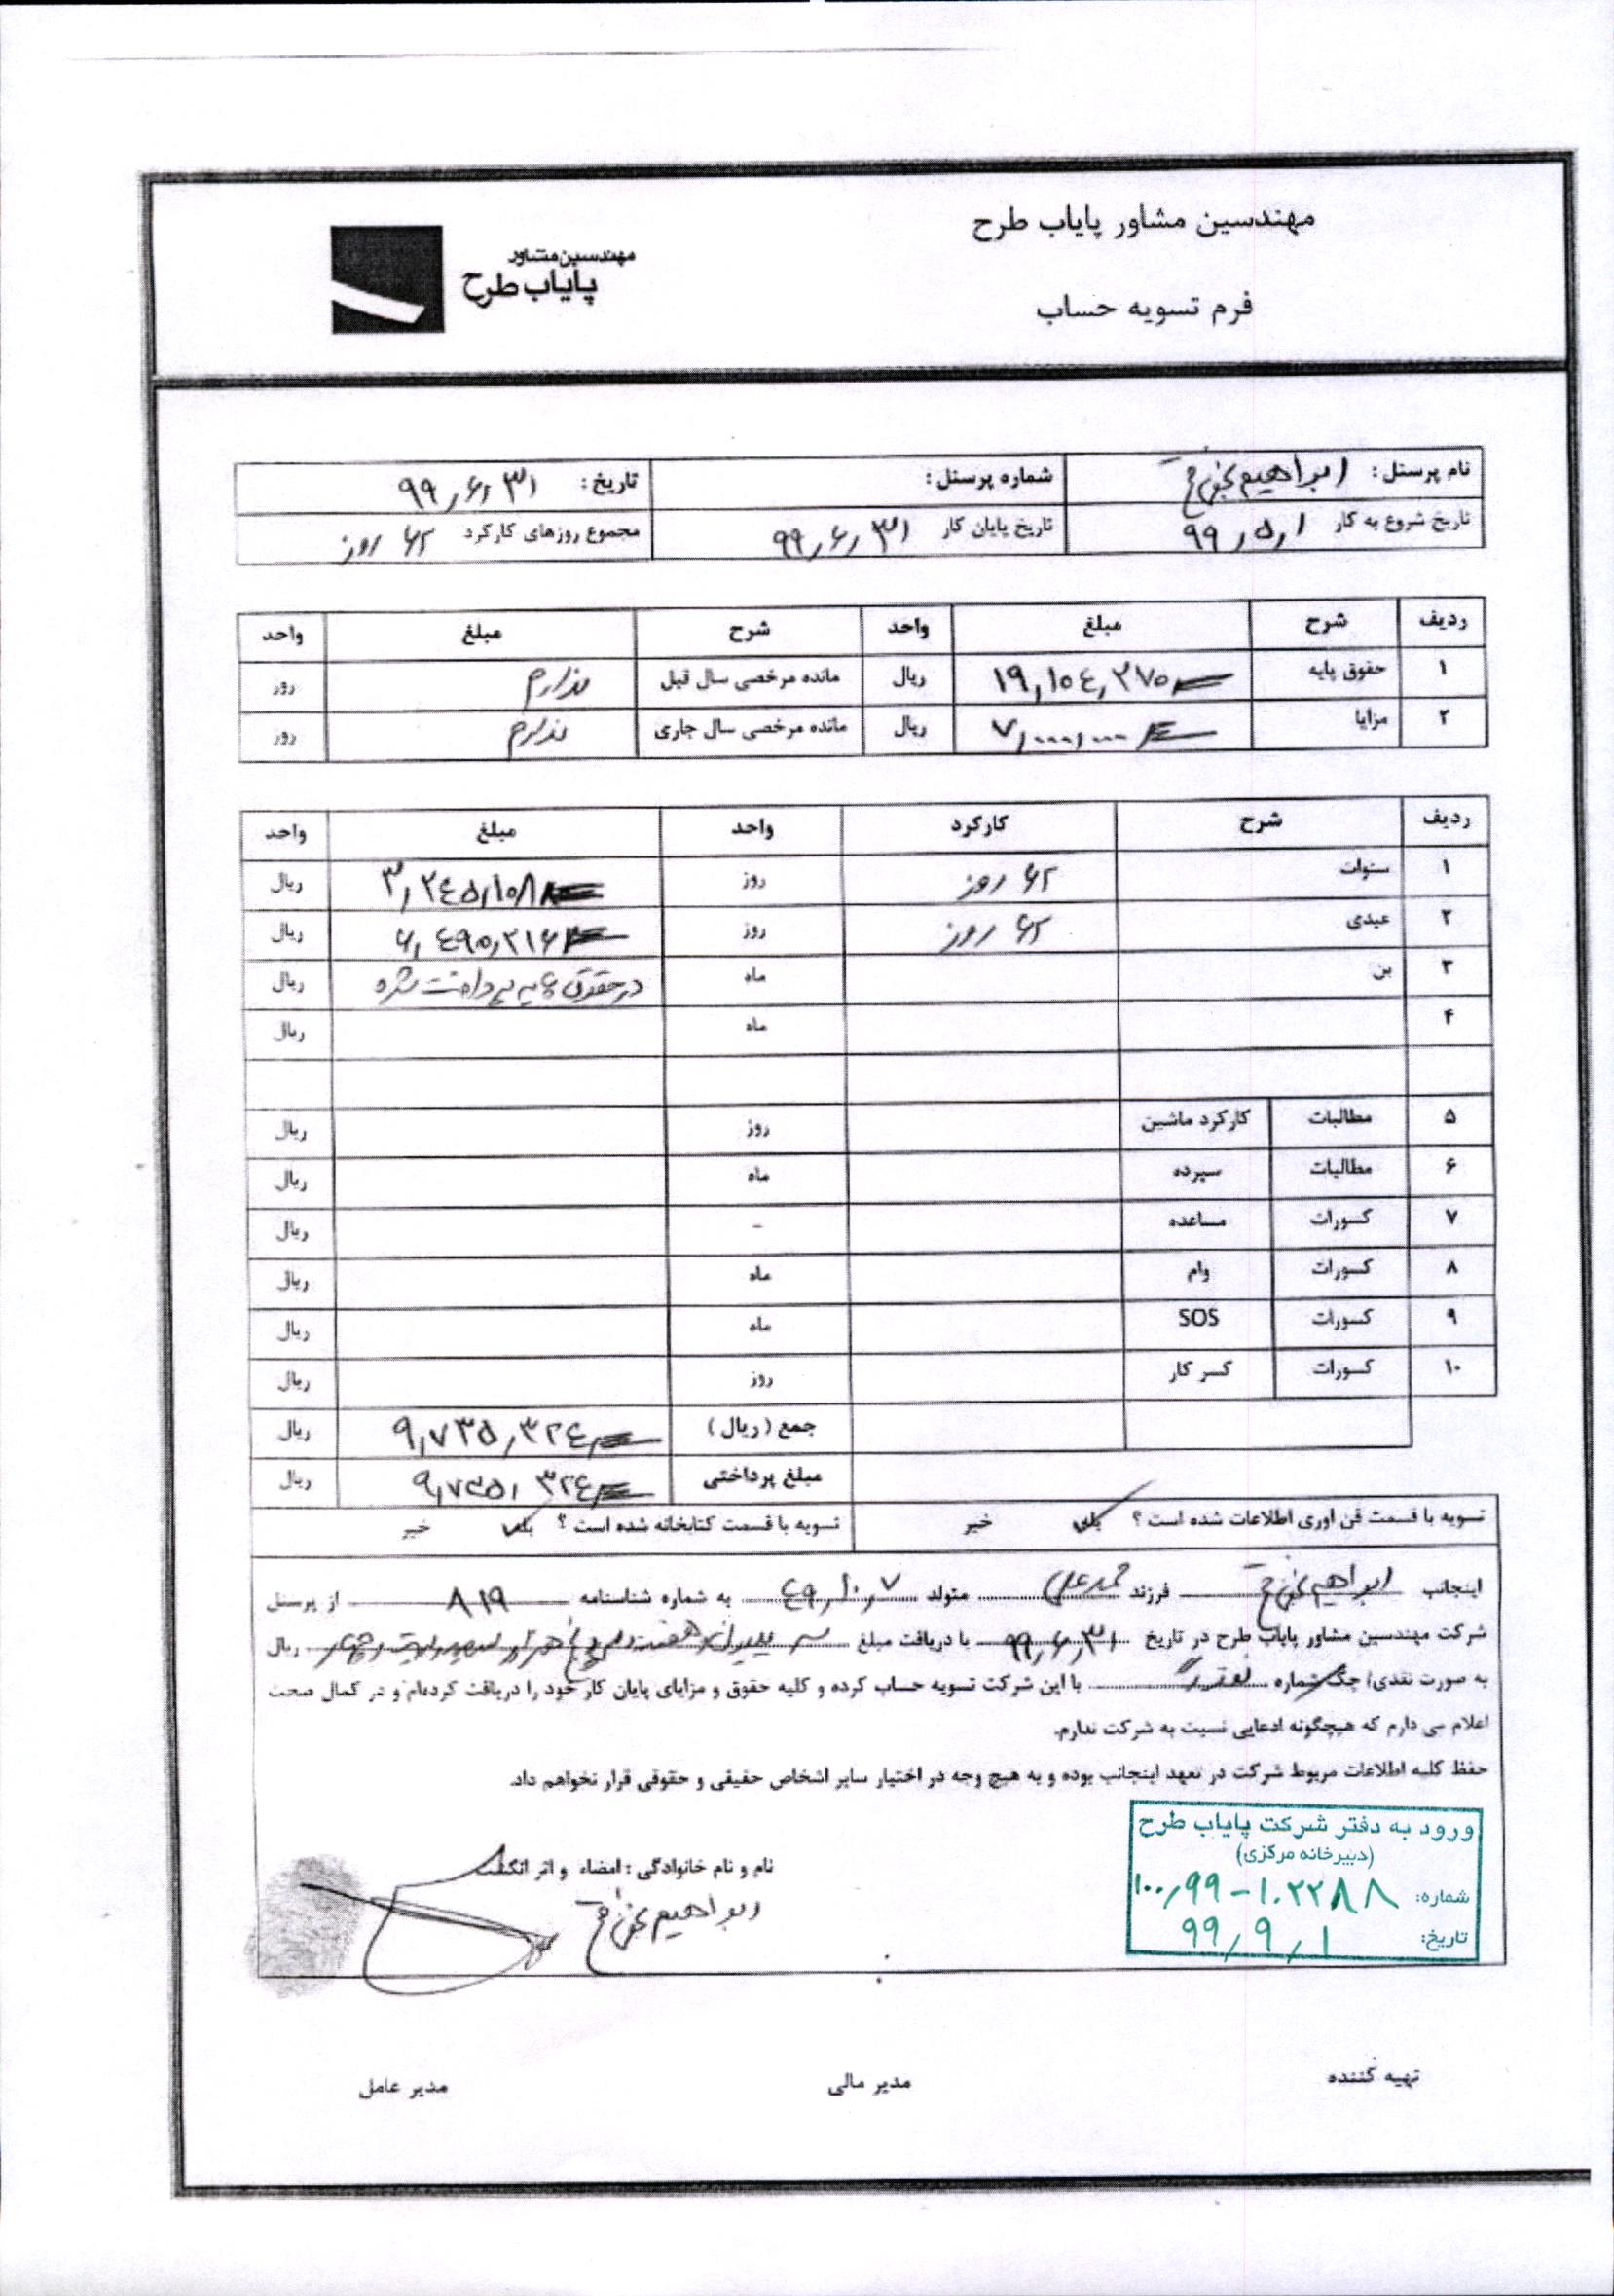 مهندسین مشاور پایاب طرح
مهندسین مشاور
پایاب طرح
فرم تسویه حساب
نام پرسنل : ابراهیم شماره پرسنل : تاریخ : ۹۹٫۶٫۳۱
تاریخ شروع به کار ۹۹٫۵٫۱ تاریخ پایان کار ۹۹٫۶٫۳۱ مجموع روزهای کارکرد ۶۲ روز
ردیف شرح مبلغ واحد شرح مبلغ واحد
۱ حقوق پایه ۱۹,۱۰۴,۳۷۰ ریال مانده مرخصی سال قبل ندارم روز
۲ مزایا ۷,۰۰۰,۰۰۰ ریال مانده مرخصی سال جاری ندارم روز
ردیف شرح کارکرد واحد مبلغ واحد
۱ سنوات ۶۲ روز روز ۳,۲۴۵,۱۰۸ ریال
۲ عیدی ۶۲ روز روز ۶,۴۹۰,۲۱۶ ریال
۳ بن ماه در حقوق پایه پرداخت شده ریال
۴ ماه ریال
۵ مطالبات کارکرد ماشین روز ریال
۶ مطالبات سپرده ماه ریال
۷ کسورات مساعده - ریال
۸ کسورات وام ماه ریال
۹ کسورات SOS ماه ریال
۱۰ کسورات کسر کار روز ریال
جمع (ریال) ۹,۷۳۵,۳۲۴ ریال
مبلغ پرداختی ۹,۷۳۵,۳۲۴ ریال
تسویه با قسمت فن اوری اطلاعات شده است ؟ بلی خیر تسویه با قسمت کتابخانه شده است ؟ بلی خیر
اینجانب ابراهیم فرزند محمدعلی متولد ۴۹٫۱۰٫۷ به شماره شناسنامه ۸۱۹ از پرسنل
شرکت مهندسین مشاور پایاب طرح در تاریخ ۹۹٫۶٫۳۱ با دریافت مبلغ ریال
به صورت نقدی/ چک شماره با این شرکت تسویه حساب کرده و کلیه حقوق و مزایای پایان کار خود را دریافت کرده‌ام و در کمال صحت
اعلام می دارم که هیچگونه ادعایی نسبت به شرکت ندارم.
حفظ کلیه اطلاعات مربوط شرکت در تعهد اینجانب بوده و به هیچ وجه در اختیار سایر اشخاص حقیقی و حقوقی قرار نخواهم داد.
ورود به دفتر شرکت پایاب طرح
(دبیرخانه مرکزی)
شماره: ۱۰۰٫۹۹-۱۰۲۲۸۸
تاریخ: ۹۹٫۹٫۱
نام و نام خانوادگی : امضاء و اثر انگشت
ابراهیم
تهیه کننده مدیر مالی مدیر عامل